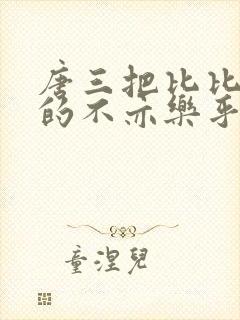 唐三把比比
的不亦樂乎
童涅兒